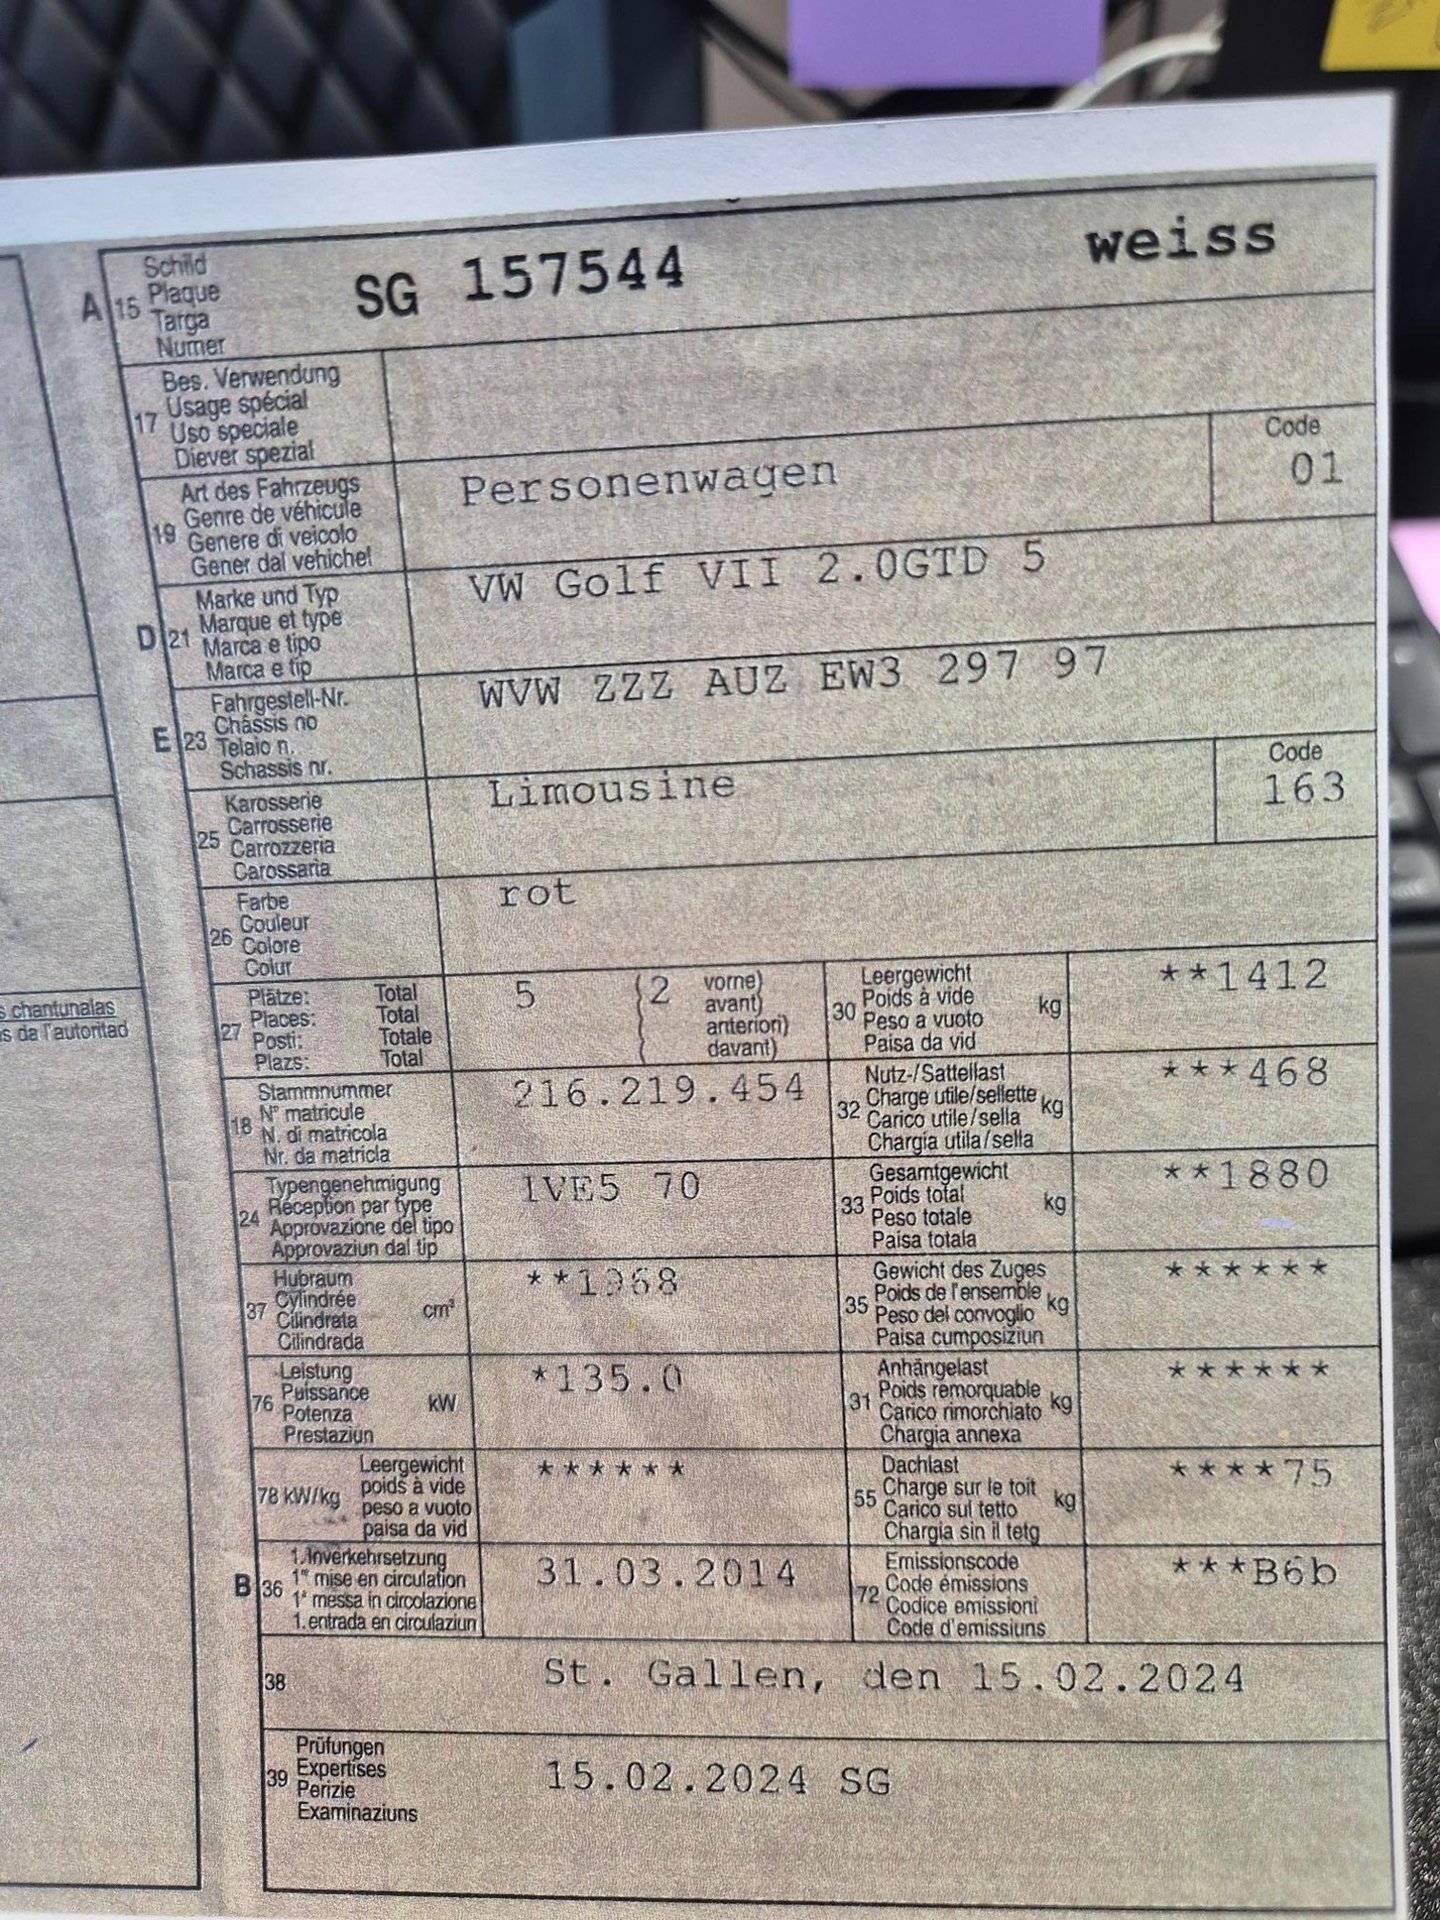 A 15 Schild
Plaque
Targa
Numer
SG 157544 weiss
17 Bes. Verwendung
Usage spécial
Uso speciale
Diever spezial
19 Art des Fahrzeugs
Genre de véhicule
Genere di veicolo
Gener dal vehichel
Personenwagen
Code
01
D 21 Marke und Typ
Marque et type
Marca e tipo
Marca e tip
VW Golf VII 2.0GTD 5
E 23 Fahrgestell-Nr.
Châssis no
Telaio n.
Schassis nr.
WVW ZZZ AUZ EW3 297 97
25 Karosserie
Carrosserie
Carrozzeria
Carossaria
Limousine
Code
163
26 Farbe
Couleur
Colore
Colur
rot
s chantunalas
ns da l'autoritad
27 Plätze: Total
Places: Total
Posti: Totale
Plazs: Total
5 (2 vorne)
avant)
anteriori)
davant)
30 Leergewicht
Poids à vide kg
Peso a vuoto
Paisa da vid
**1412
18 Stammnummer
N° matricule
N. di matricola
Nr. da matricla
216.219.454
32 Nutz-/Sattellast
Charge utile/sellette kg
Carico utile/sella
Chargia utila/sella
***468
24 Typengenehmigung
Réception par type
Approvazione del tipo
Approvaziun dal tip
1VE5 70
33 Gesamtgewicht
Poids total kg
Peso totale
Paisa totala
**1880
37 Hubraum
Cylindrée cm³
Cilindrata
Cilindrada
**1968
35 Gewicht des Zuges
Poids de l'ensemble kg
Peso del convoglio
Paisa cumposiziun
******
76 Leistung
Puissance kW
Potenza
Prestaziun
*135.0
31 Anhängelast
Poids remorquable kg
Carico rimorchiato
Chargia annexa
******
78 kW/kg Leergewicht
poids à vide
peso a vuoto
paisa da vid
******
55 Dachlast
Charge sur le toit kg
Carico sul tetto
Chargia sin il tetg
****75
B 36 1.Inverkehrsetzung
1re mise en circulation
1a messa in circolazione
1. entrada en circulaziun
31.03.2014
72 Emissionscode
Code émissions
Codice emissioni
Code d'emissiuns
***B6b
38 St. Gallen, den 15.02.2024
39 Prüfungen
Expertises
Perizie
Examinaziuns
15.02.2024 SG